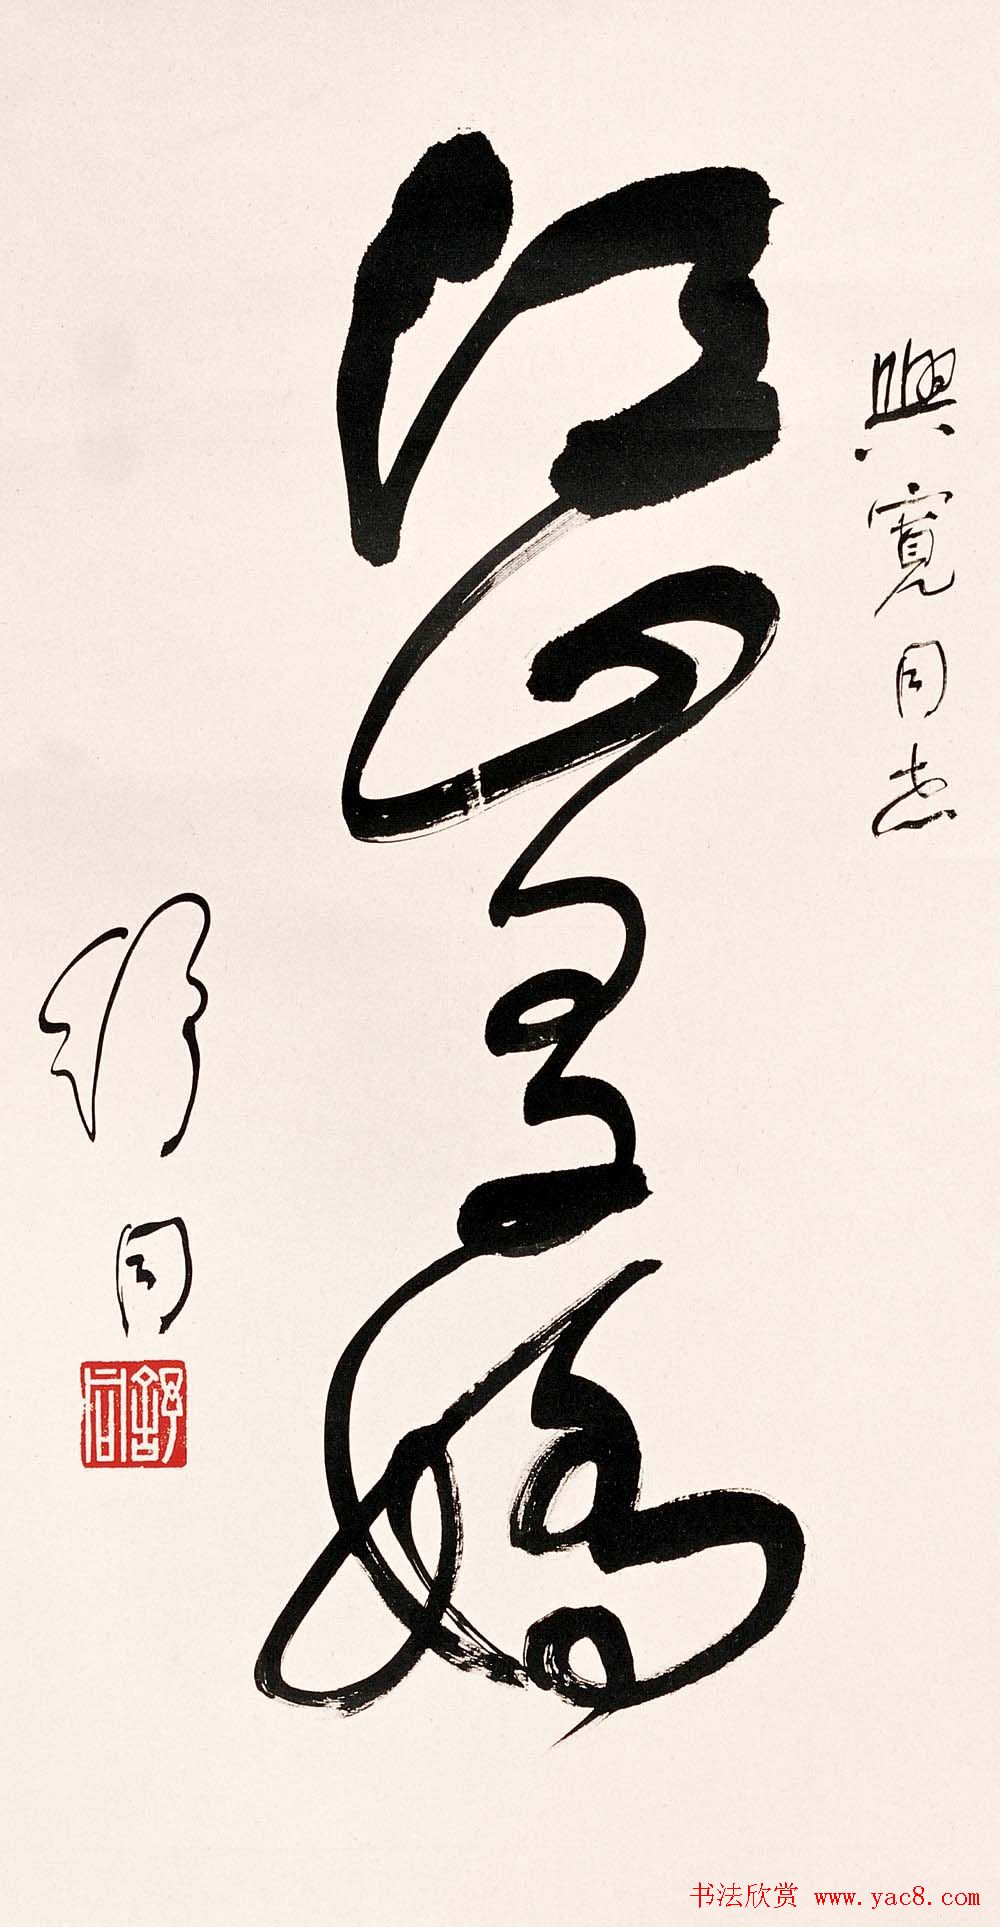 興寬同志
江山多嬌
舒同
舒同
书法欣赏 www.yac8.com